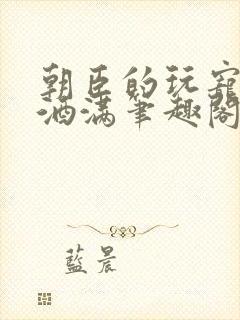 朝臣的玩寵
酒满笔趣閣
藍晨